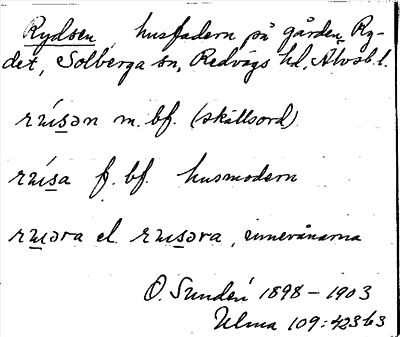 Rydsen, husfadern på gården Ry-
det, Solberga sn, Redvägs hd, Älvsb. l.
rʉ́isən m. bf. (skällsord)
rʉísa f. bf. husmodern
rʉəra el. rʉisəra, invånarna
O. Sundén 1898 – 1903
Ulma 109:423 b3